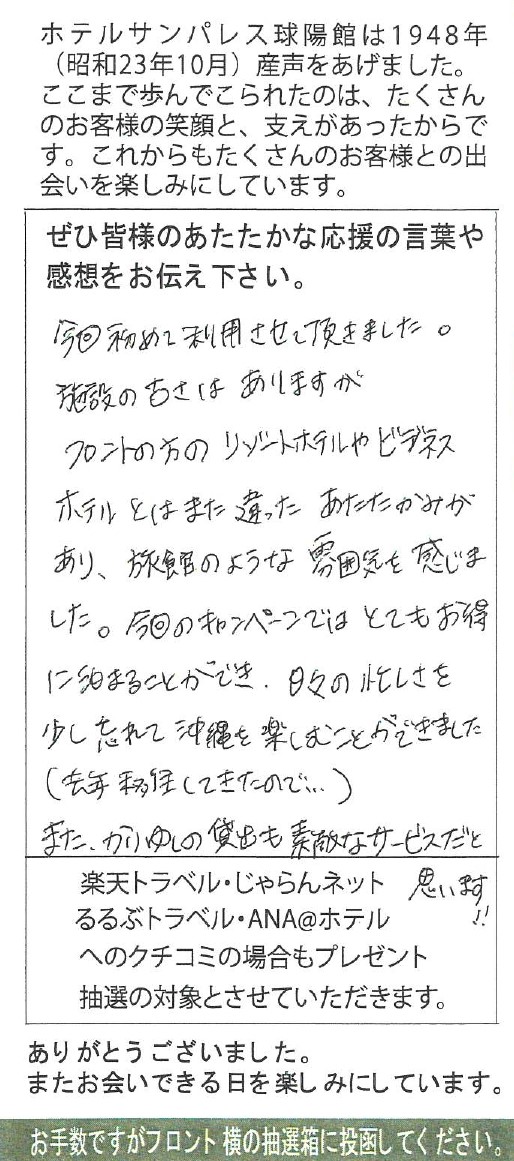 ホテルサンパレス球陽館は1948年
（昭和23年10月）産声をあげました。
ここまで歩んでこられたのは、たくさん
のお客様の笑顔と、支えがあったからで
す。これからもたくさんのお客様との出
会いを楽しみにしています。
ぜひ皆様のあたたかな応援の言葉や
感想をお伝え下さい。
今回初めて利用させて頂きました。
施設の古さはありますが
フロントの方のリゾートホテルやビジネス
ホテルとはまた違ったあたたかみが
あり、旅館のような雰囲気を感じま
した。今回のキャンペーンではとてもお得
に泊まることができ、日々の忙しさを
少し忘れて沖縄を楽しむことができました
（去年移住してきたので…）
また、かりゆしの貸出も素敵なサービスだと
思います!!
楽天トラベル・じゃらんネット
るるぶトラベル・ANA@ホテル
へのクチコミの場合もプレゼント
抽選の対象とさせていただきます。
ありがとうございました。
またお会いできる日を楽しみにしています。
お手数ですがフロント横の抽選箱に投函してください。